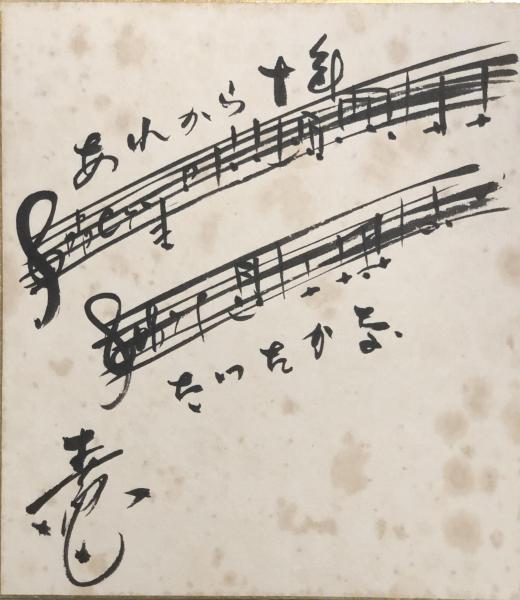 あれから十年
たつたかな